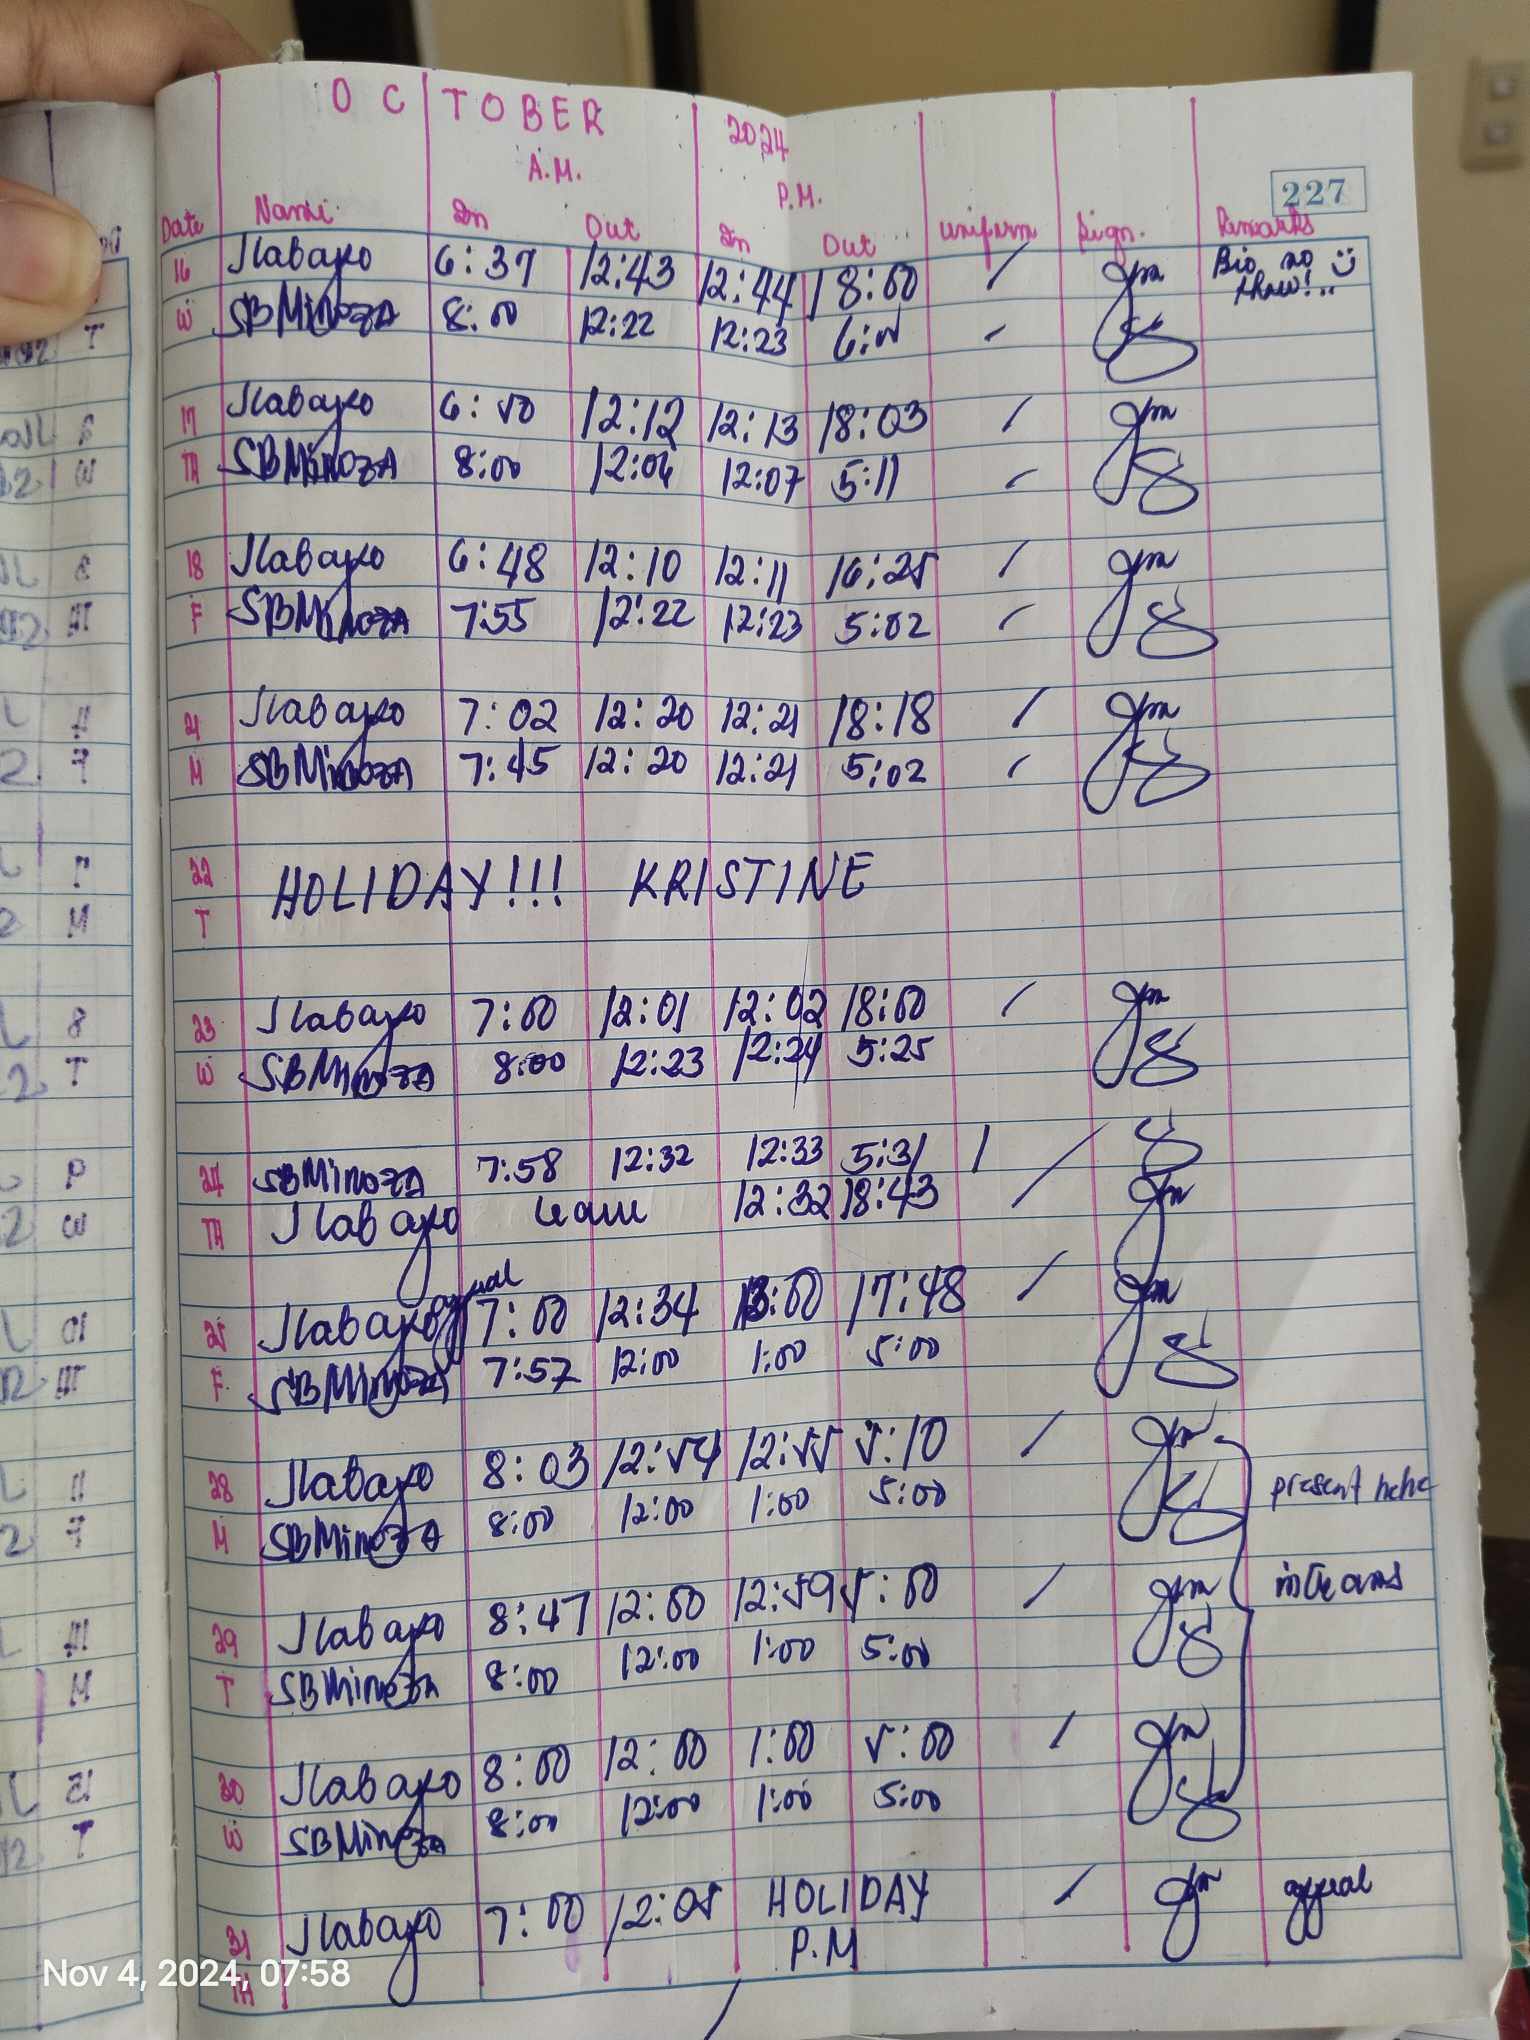 OCTOBER 2024
A.M. P.M.
227
Date Name In Out In Out Uniform Sign. Remarks
16 Jlabayo 6:37 12:43 12:44 18:00 / Bio no
W SBMinoza 8:00 12:22 12:23 6:00 /
17 Jlabayo 6:50 12:12 12:13 18:03 /
TH SBMinoza 8:00 12:06 12:07 5:11 /
18 Jlabayo 6:48 12:10 12:11 16:25 /
F SBMinoza 7:55 12:22 12:23 5:02 /
21 Jlabayo 7:02 12:20 12:21 18:18 /
M SBMinoza 7:45 12:20 12:21 5:02 /
22 HOLIDAY!!! KRISTINE
T
23 Jlabayo 7:00 12:01 12:02 18:00 /
W SBMinoza 8:00 12:23 12:24 5:25
24 SBMinoza 7:58 12:32 12:33 5:31 /
TH Jlabayo leave 12:32 18:43 /
appeal
25 Jlabayo 7:00 12:34 13:00 17:48 /
F SBMinoza 7:57 12:00 1:00 5:00
28 Jlabayo 8:03 12:54 12:55 5:10 / present hehe
M SBMinoza 8:00 12:00 1:00 5:00
29 Jlabayo 8:47 12:00 12:59 5:00 / intrams
T SBMinoza 8:00 12:00 1:00 5:00
30 Jlabayo 8:00 12:00 1:00 5:00 /
W SBMinoza 8:00 12:00 1:00 5:00
31 Jlabayo 7:00 12:05 HOLIDAY / appeal
TH P.M
Nov 4, 2024, 07:58